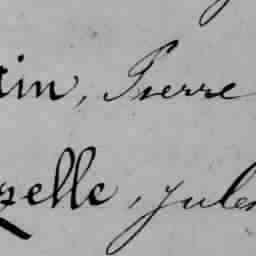 tin, Pierre
zelle, Jules